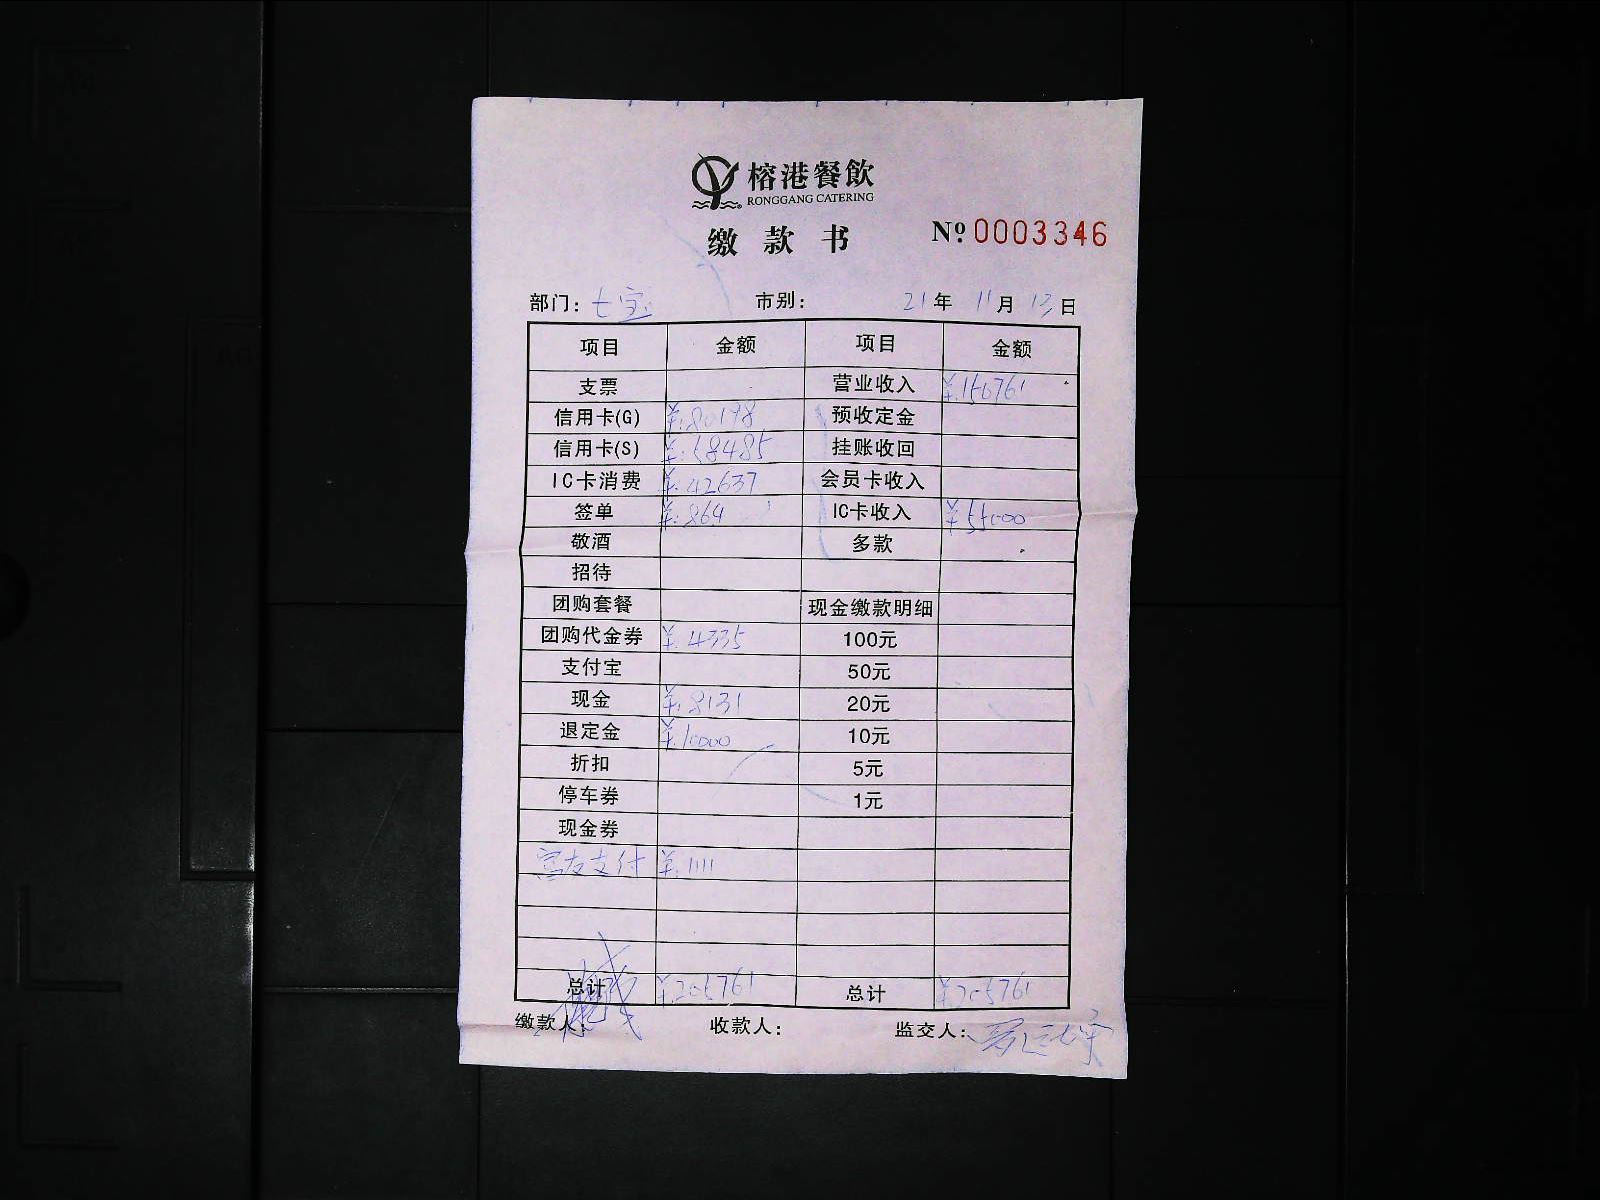 榕港餐飲
RONGGANG CATERING
缴款书 №0003346
部门: 七宝 市别: 21年 11月 13日
项目 金额 项目 金额
支票 营业收入 ¥:150761
信用卡(G) ¥:80198 预收定金
信用卡(S) ¥:58485 挂账收回
IC卡消费 ¥:42637 会员卡收入
签单 ¥:864 IC卡收入 ¥55000
敬酒 多款
招待
团购套餐 现金缴款明细
团购代金券 ¥:4335 100元
支付宝 50元
现金 ¥:8131 20元
退定金 ¥:10000 10元
折扣 5元
停车券 1元
现金券
支付 ¥:1111
总计 ¥:205761 总计 ¥:205761
缴款人: 收款人: 监交人: